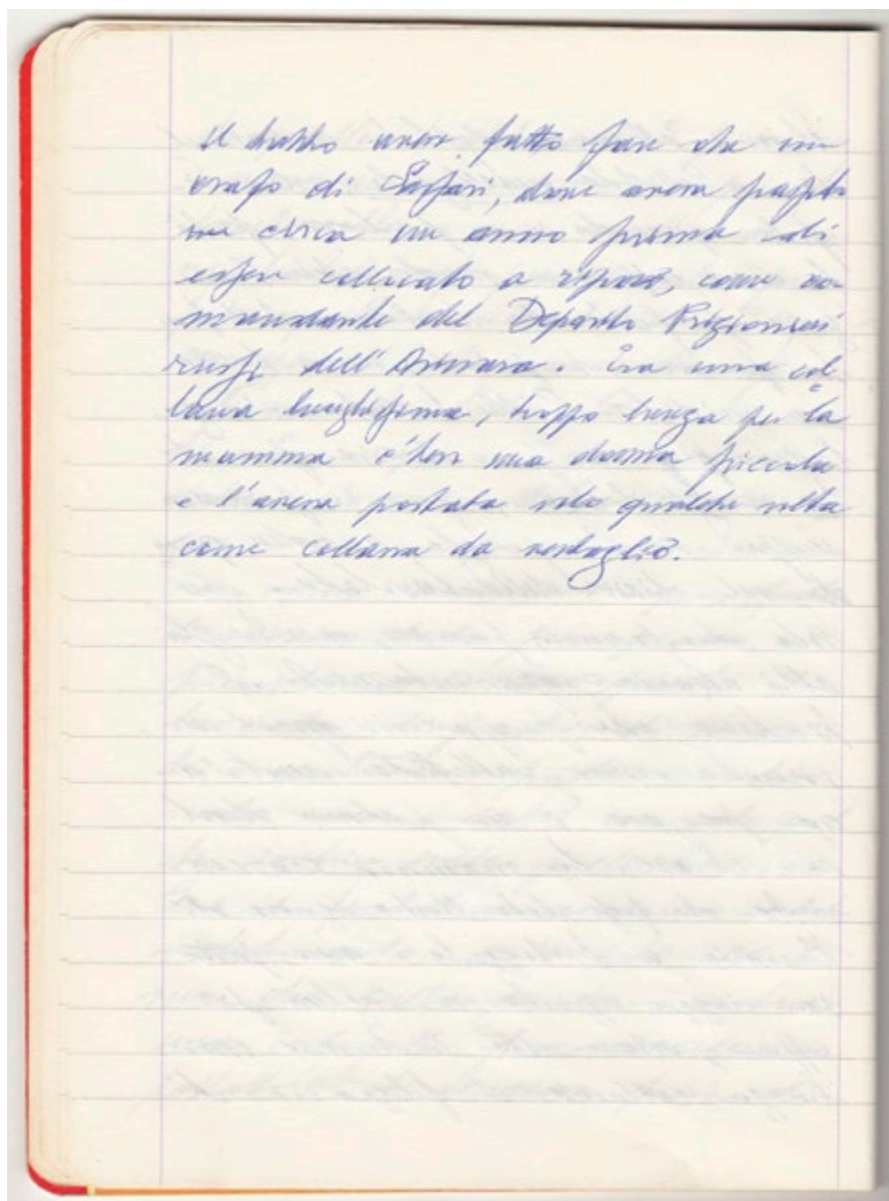 Il babbo aveva fatto fare da un
orafo di Sassari, dove aveva passato
circa un anno prima di
esser collocato a riposo, come co-
mandante del Deposito Prigionieri
russi dell'Asinara. Era una col-
lana lunghissima, troppo lunga per la
mamma ch'era una donna piccola
e l'aveva portata solo qualche volta
come collana da ventaglio.